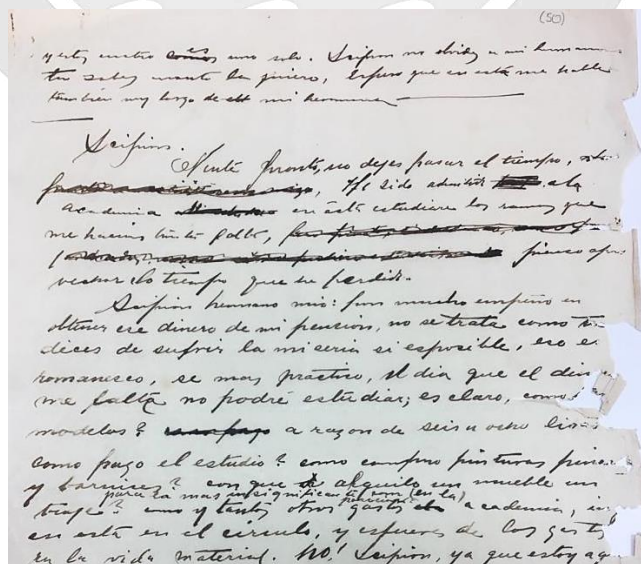 (50)
y esto, cuatro es uno solo. Scipion no olvides a mi hermano
tu sabes cuanto la quiero, Espero que en esta me hable
tambien muy largo de mi hermana
Scipion.
Vente pronto, no dejes pasar el tiempo,
He sido admitido a la
academia en ésta estudiare los ramos que
me hacian tanta falta, pienso apro
vechar lo tiempo que he perdido.
Scipion hermano mio: pon mucho empeño en
obtener ese dinero de mi pension, no se trata como tu
dices de sufrir la miseria si es posible, eso es
romanesco, se mas practico, el dia que el din
me falta no podré estudiar; es claro, como
modelos? a razon de seis u ocho liras
como pago el estudio? como compro pinturas pince
y barnices? con que alquilo un mueble un
para la mas insignificante (en la)
traje? como y tantos otros gastos academia, in
en está en el círculo, y esfueros de los gastos
en la vida material. NO! Scipion, ya que estoy aq